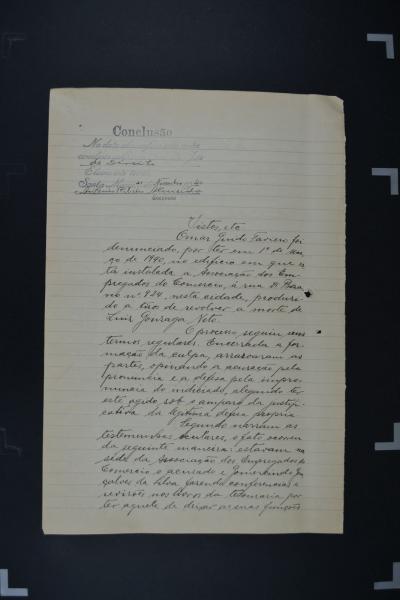 Conclusão
de Direito
Santa
Vistos, etc
Omar Guido Taviero foi
denunciado, por ter em 1º de mar-
ço de 1940, no edificio em que es-
tá instalada a Associação dos Em-
pregados do Comercio, á rua Dr Boza
no nº 924, nesta cidade, produzi-
do a tiros de revolver a morte de
Luiz Gonzaga Neto.
O processo seguiu seus
termos regulares. Encerrada a for-
mação da culpa, arrazoaram as
partes, opinando a acusação pela
pronuncia e a defesa pela impro-
nuncia do indiciado, alegando ter
este agido sob o amparo da justifi-
cativa da legitima defesa propria.
Segundo narram as
testemunhas oculares, o fato ocorreu
da seguinte maneira: estavam na
séde da Associação dos Empregados do
Comercio o acusado e Gon-
çalves da Silva fazendo conferencias e
revisões nos livros da tesouraria por
ter aquele de deixar as suas funções